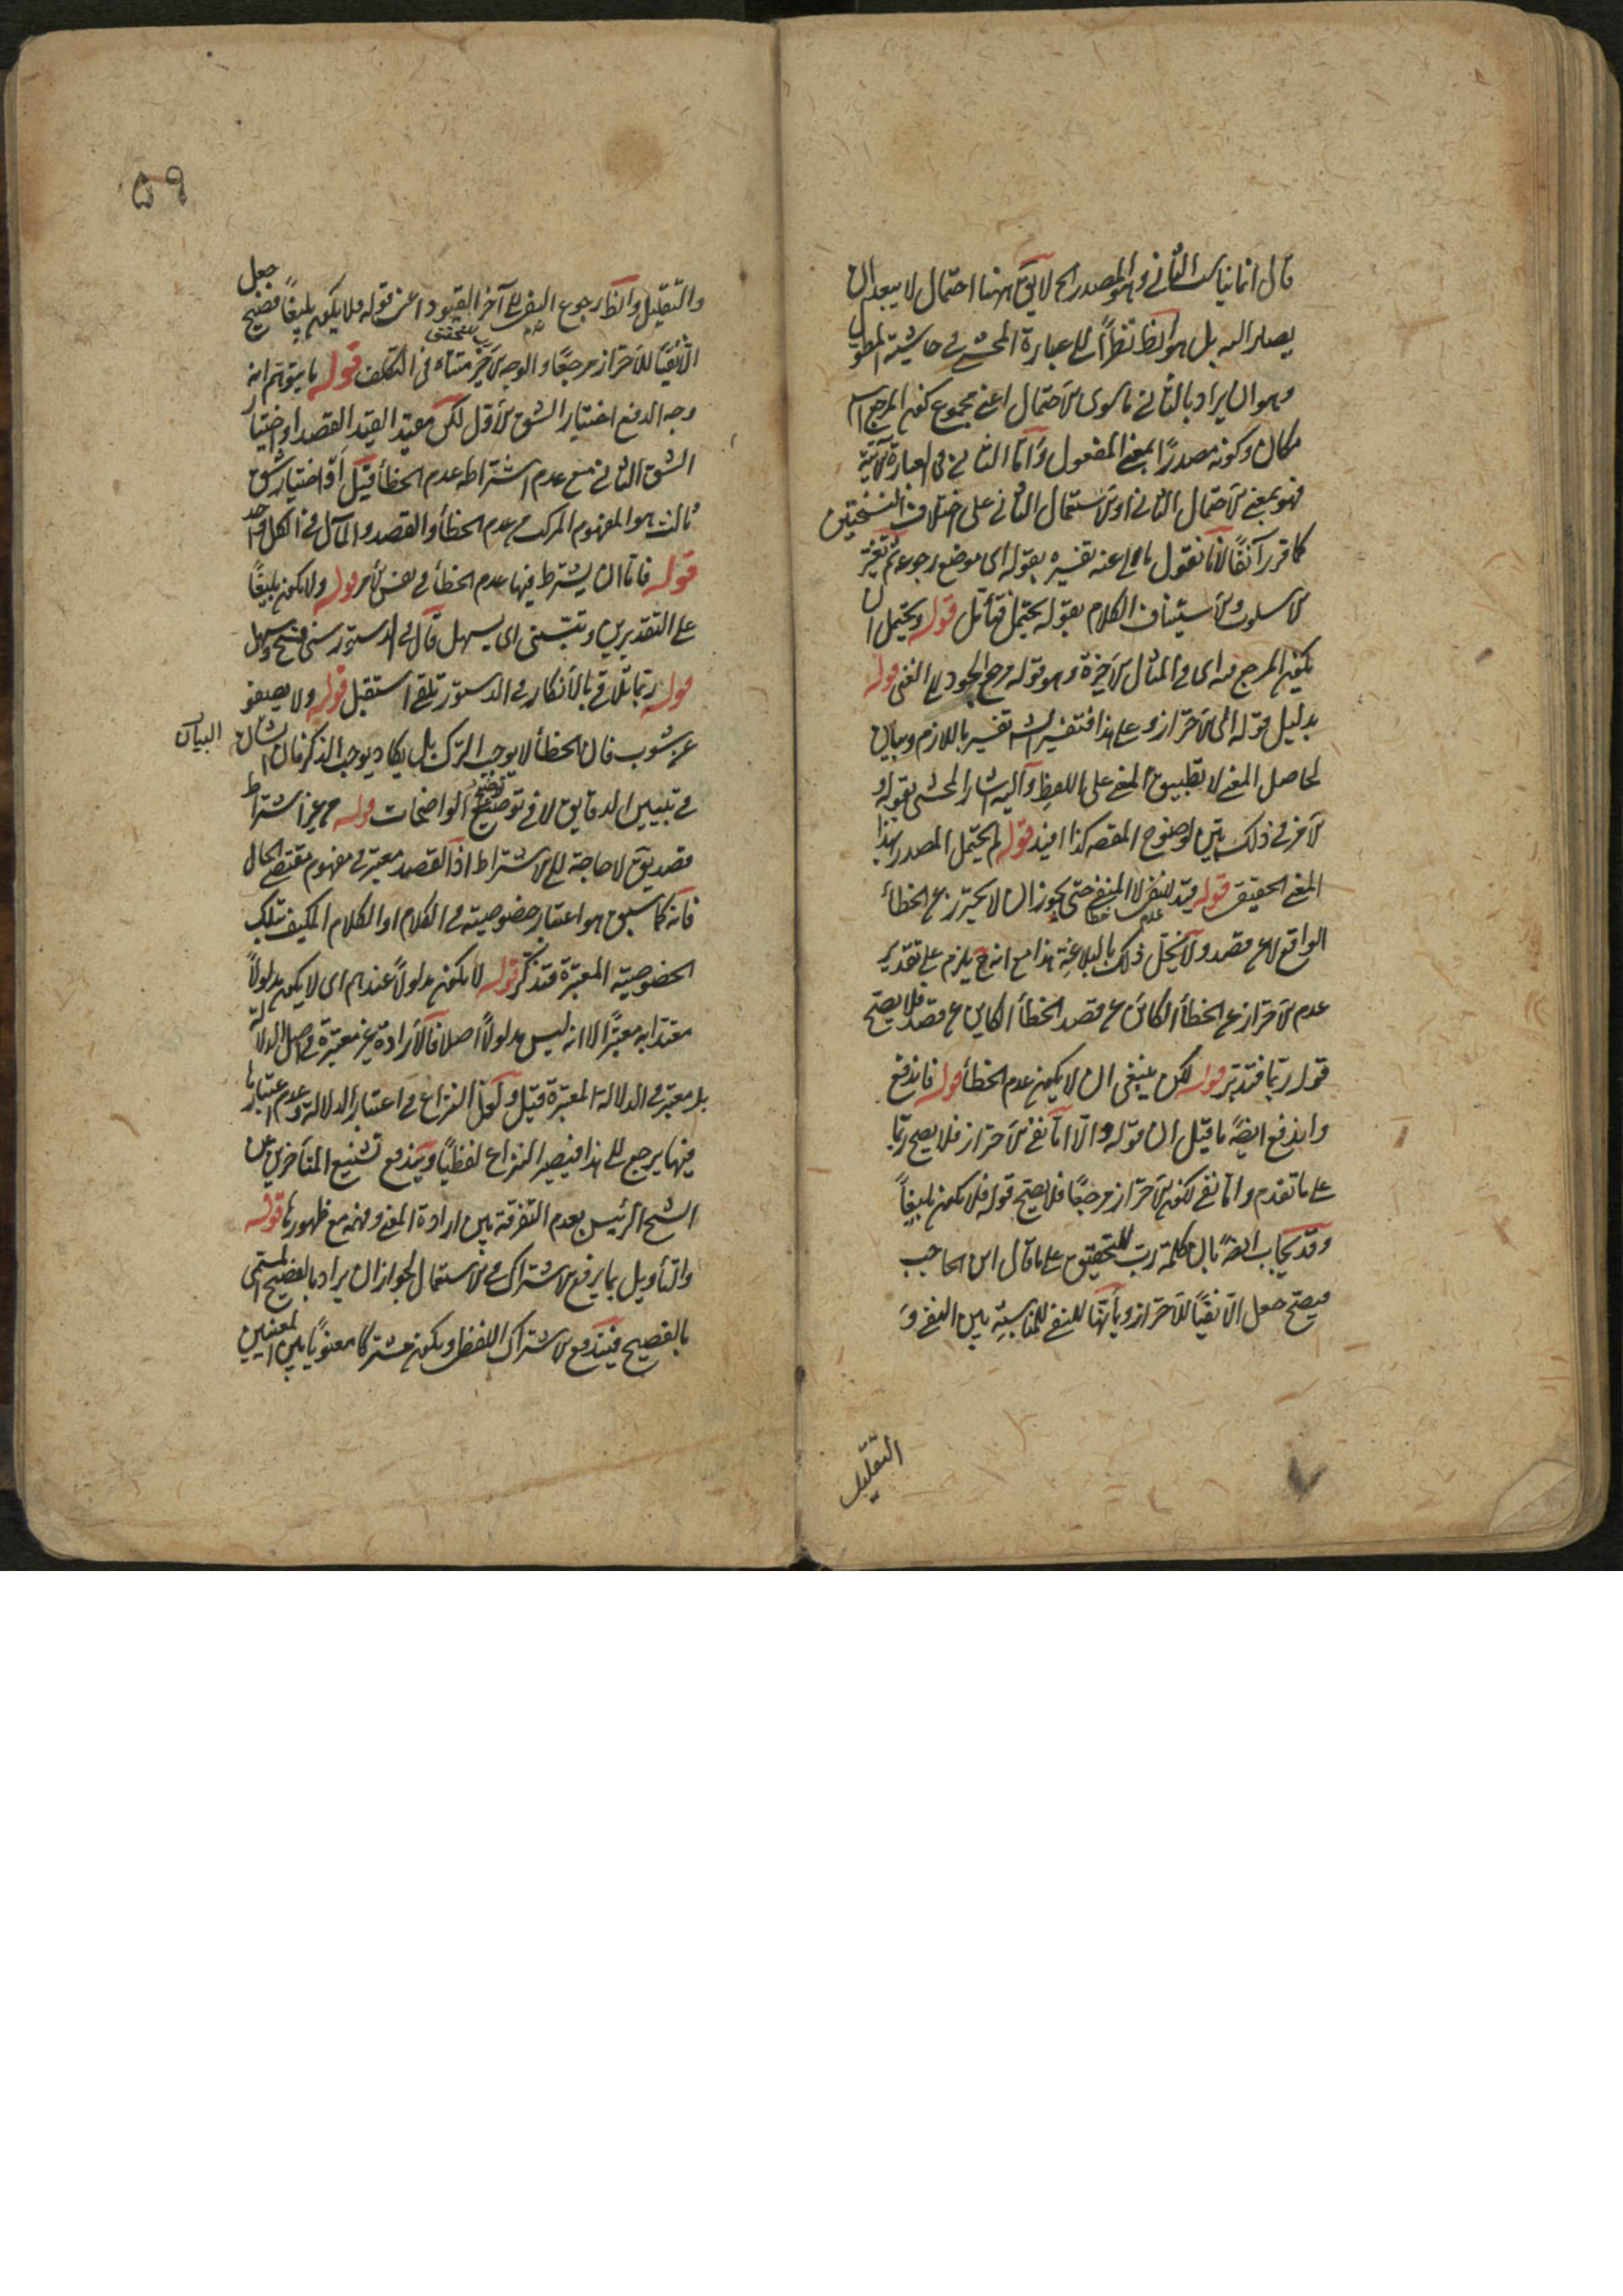 قال انما يناسب الثاني وهو المصدر الخ لا يق ههنا احتمال لا يبعد ان
يصار اليه بل هو الظ نظرا الى عبارة المحشي في حاشية المطول
وهو ان يراد بالثاني ما سوى الاحتمال اعني مجموع كون المرجع اسم
مكان وكونه مصدرًا بمعنى المفعول واما الثاني في العبارة الآتية
فهو بمعنى الاحتمال الثاني او الاستعمال الثاني على اختلاف النسختين
كما قرر آنفًا لانا نقول يأبى عنه تفسيره بقوله اى موضع رجوعه ثم تغير
الاسلوب والاستيناف الكلام بقوله يحتمل فتأمل قوله ويحتمل ان
يكون المرجع فيه اى في المثال الاخير وهو قوله مرجع الجود الى الغنى قوله
بدليل قوله الى الاحتراز وعلى هذا فتفسير الش تفسير باللازم وبيان
لحاصل المعنى لا تطبيق المعنى على اللفظ واليه اشار المحشي بقوله و
الامر في ذلك بين لوضوح المقصد كذا افيد قوله لم يحتمل المصدر بهذا
المعنى الحقيقي قوله قيد للنفي لا المنفي حتى يجوز ان لا يحترز عن الخطأ
الواقع لا عن قصد ولا يخل ذلك بالبلاغة هذا مع انه ح يلزم على تقدير
عدم الاحتراز عن الخطأ الكائن عن قصد الخطأ الكاين عن قصد فلا يصح
قوله ربما فتدبر قوله لكن ينبغي ان لا يكون عدم الخطأ قوله فاندفع
واندفع ايضًا ما قيل ان قوله والا اما نفى الاحتراز فلا يصح ربما
على ما تقدم واما نفى لكون الاحتراز مرجعًا فلا يصح قوله فلا يكون بليغًا
وقد يجاب ايضًا بان كلمة رب للتحقيق على ما قال ابن الحاجب
فيصح جعل الا نفيًا للاحتراز وبأنها للنفي للمناسبة بين النفي و
التقليل
٥٩
والتقليل والظ رجوع النفي الى آخر القيود اعنى قوله فلا يكون بليغًا فصح جعل
الا نفيًا للاحتراز مرجعًا والوجه الاخير متناه في التكلف قوله ما يتوهم انه
وجه الدفع اختيار الشق الاول لكن مقيد القيد القصد او اختيار
الشق الثاني مع عدم اشتراطه عدم الخطأ قيل او اختيار شق
ثالث هو المفهوم المركب من عدم الخطأ والقصد والمآل في الكل واحد
قوله فاما ان يشترط فيها عدم الخطأ في نفس الامر قوله ولا يكون بليغًا
على التقديرين وتتسنى اى يسهل قال في الدستور سنى فتح وسهل
قوله ربما تلاقي بالانكار في الدستور تلقى استقبل قوله ولا يصفو
عن شوب فان الخطأ لا يوجب الترك بل يكاد يوجب الذكر فان شأن البيان
في تبيين الدقايق لا في توضيح الواضحات قوله من غير اشتراط
قصد يق لا حاجة الى الاشتراط اذ القصد معتبر في مفهوم مقتضى الحال
فانه كما سبق هو اعتبار خصوصيته في الكلام او الكلام المكيف بتلك
الخصوصية المعتبرة فتذكر قوله لا يكون مدلولاً عندهم اى لا يكون مدلولاً
معتدا به معتبرًا لا انه ليس مدلولاً اصلا فالارادة غير معتبرة في اصل الدلالة
بل معتبرة في الدلالة المعتبرة قيل ولعل النزاع في اعتبار الدلالة وعدم اعتبارها
فيها يرجع الى هذا فيصير النزاع لفظيًا ويندفع تشنيع المتأخرين عن
الشيخ الرئيس بعدم التفرقة بين ارادة المعنى وفهمه مع ظهورها قوله
والتأويل بما يرفع الاشتراك من الاستعمال لجواز ان يراد بالفصيح المسمى
بالفصيح فيندفع الاشتراك اللفظي ويكون مشتركا معنويًا بين المعنيين